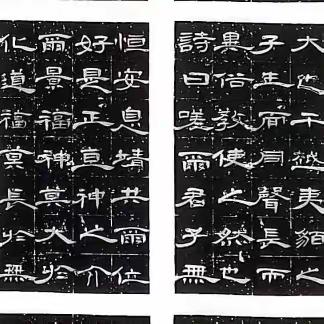 大也干越夷貉之
子生而同聲長而
異俗教使之然也
詩曰嗟爾君子無
恒安息靖共爾位
好是正直神之介
爾景福神莫大於
化道福莫長於無